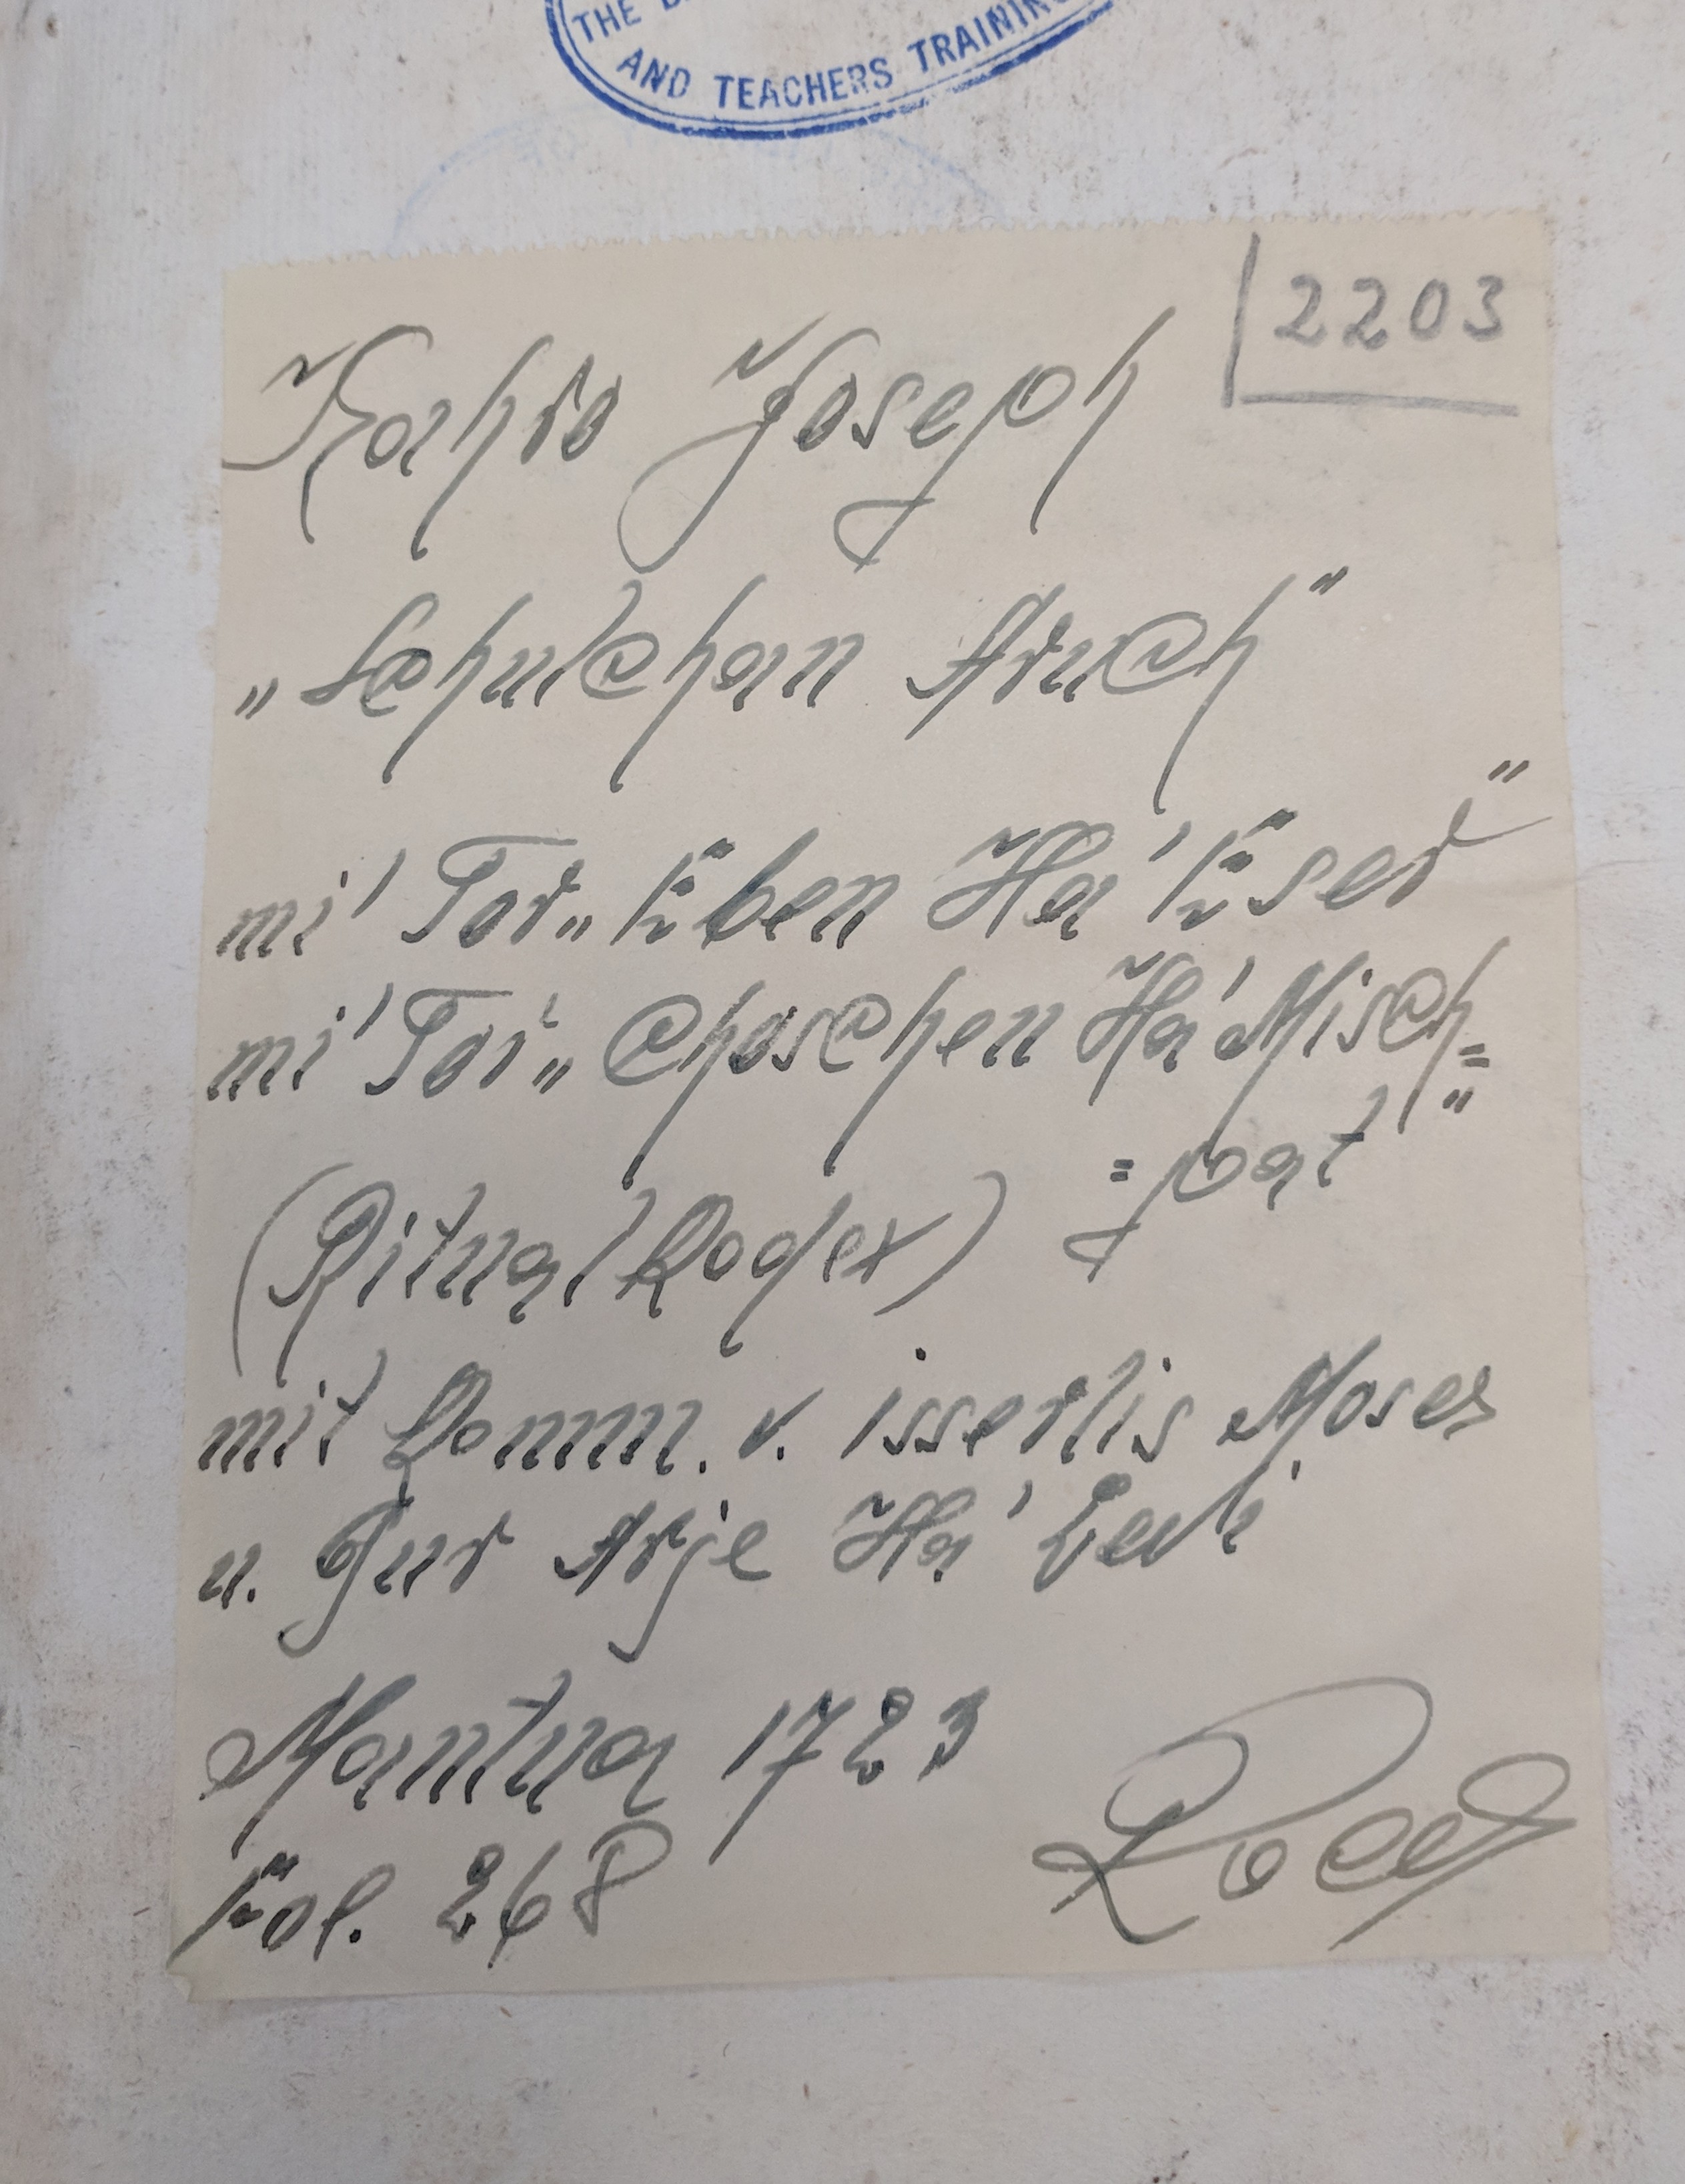 THE
AND TEACHERS TRAINING
2203
Kahro Joseph
„Schulchan Aruch"
mi' Tor „Eben Ha' Eser"
mi' Tor „Choschen Ha' Misch=
=pat"
(Ritual Kodex)
mit Komm. v. isserlis Moses
u. Gur Arje Ha' Levi
Mantua 1723
Fol. 268